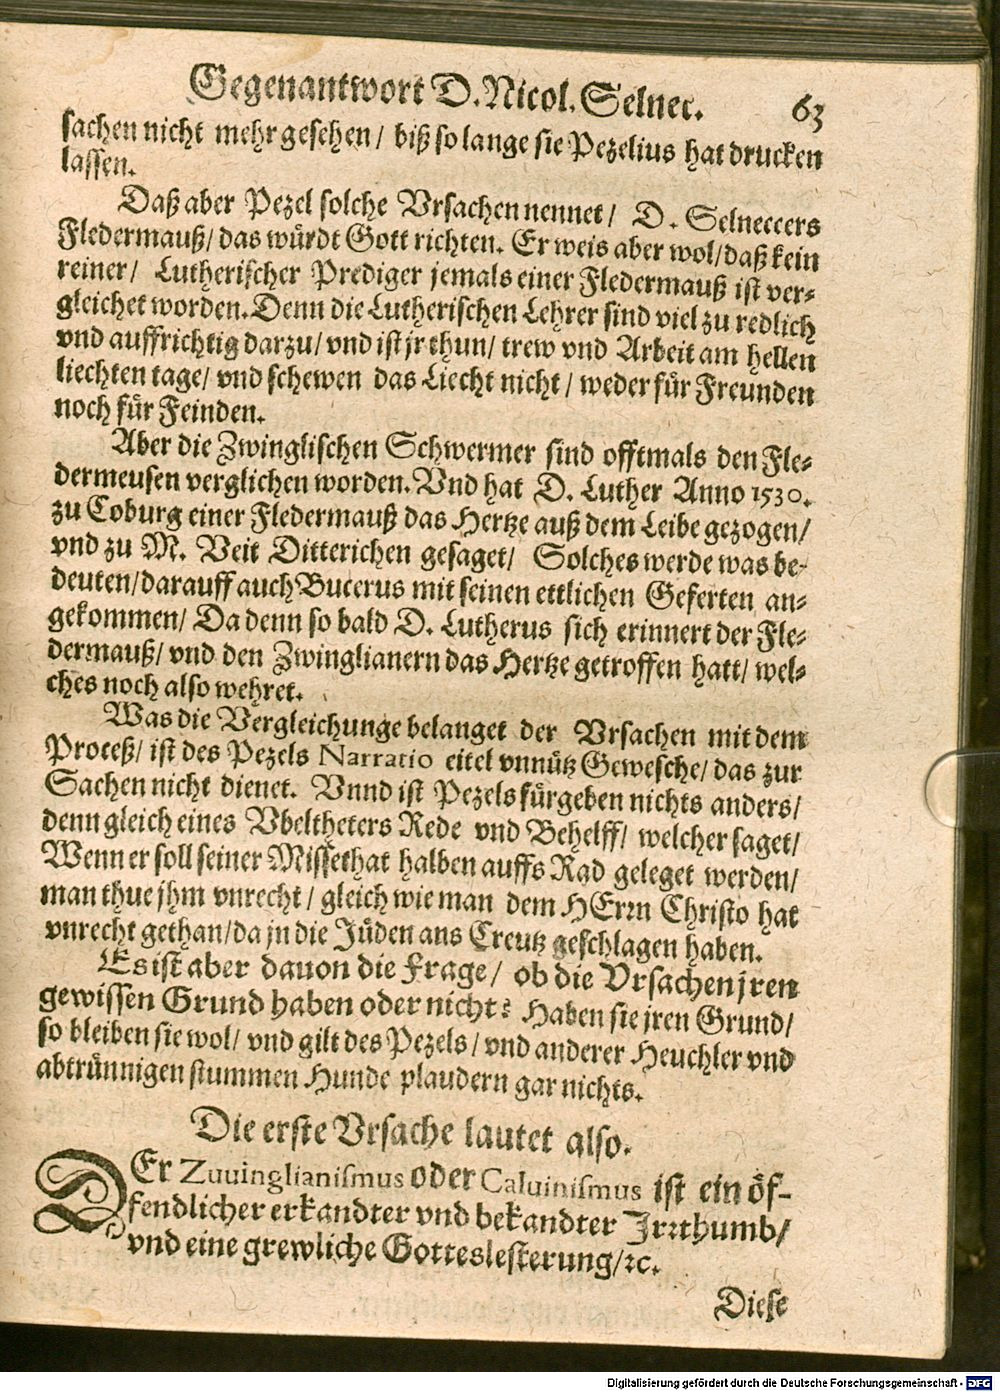 Gegenantwort D. Nicol. Selnec. 63
sachen nicht mehr gesehen / biß so lange sie Pezelius hat drucken
lassen.
Daß aber Pezel solche Vrsachen nennet / D. Selneccers
Fledermauß / das würdt Gott richten. Er weis aber wol / daß kein
reiner / Lutherischer Prediger jemals einer Fledermauß ist ver⸗
gleichet worden. Denn die Lutherischen Lehrer sind viel zu redlich
vnd auffrichtig darzu / vnd ist jr thun / trew vnd Arbeit am hellen
liechten tage / vnd schewen das Liecht nicht / weder für Freunden
noch für Feinden.
Aber die Zwinglischen Schwermer sind offtmals den Fle⸗
dermeusen verglichen worden. Vnd hat D. Luther Anno 1530.
zu Coburg einer Fledermauß das Hertze auß dem Leibe gezogen /
vnd zu M. Veit Ditterichen gesaget / Solches werde was be-
deuten / darauff auch Bucerus mit seinen ettlichen Geferten an⸗
gekommen / Da denn so bald D. Lutherus sich erinnert der Fle⸗
dermauß / vnd den Zwinglianern das Hertze getroffen hatt / wel⸗
ches noch also wehret.
Was die Vergleichunge belanget der Vrsachen mit dem
Proceß / ist des Pezels Narratio eitel vnnütz Gewesche / das zur
Sachen nicht dienet. Vnnd ist Pezels fürgeben nichts anders /
denn gleich eines Vbeltheters Rede vnd Behelff / welcher saget /
Wenn er soll seiner Missethat halben auffs Rad geleget werden /
man thue jhm vnrecht / gleich wie man dem HErrn Christo hat
vnrecht gethan / da jn die Jüden ans Creutz geschlagen haben.
Es ist aber dauon die Frage / ob die Vrsachen jren
gewissen Grund haben oder nicht? Haben sie jren Grund /
so bleiben sie wol / vnd gilt des Pezels / vnd anderer Heuchler vnd
abtrünnigen stummen Hunde plaudern gar nichts.
Die erste Vrsache lautet also.
DEr Zuuinglianismus oder Caluinismus ist ein öf-
fendlicher erkandter vnd bekandter Jrrthumb /
vnd eine grewliche Gotteslesterung / ꝛc.
Diese
Digitalisierung gefördert durch die Deutsche Forschungsgemeinschaft - DFG